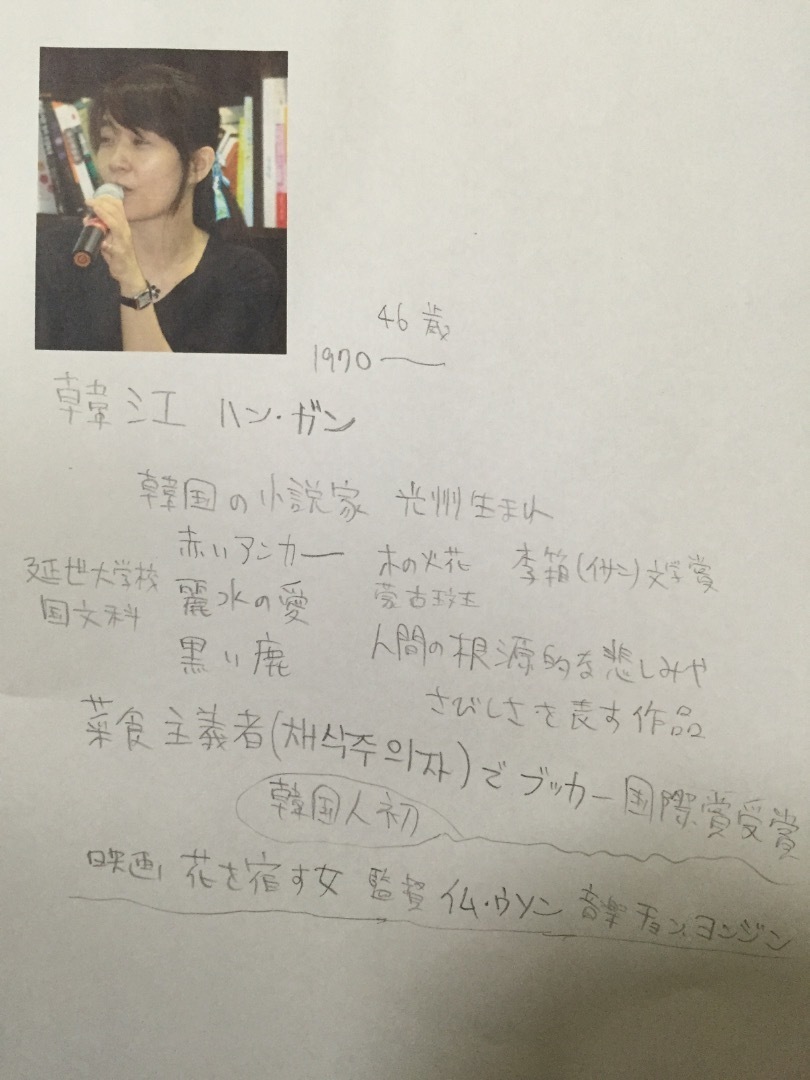 46歳
1970 ——
韓江 ハン・ガン
韓国の小説家 光州生まれ
赤いアンカー 木の火花 李箱(イサン)文学賞
延世大学校 麗水の愛 蒙古斑
国文科
黒い鹿 人間の根源的な悲しみや
さびしさを表す作品
菜食主義者(채식주의자)でブッカー国際賞受賞
韓国人初
映画 花を宿す女 監督 イム・ウソン 音楽 チョン、ヨンジン